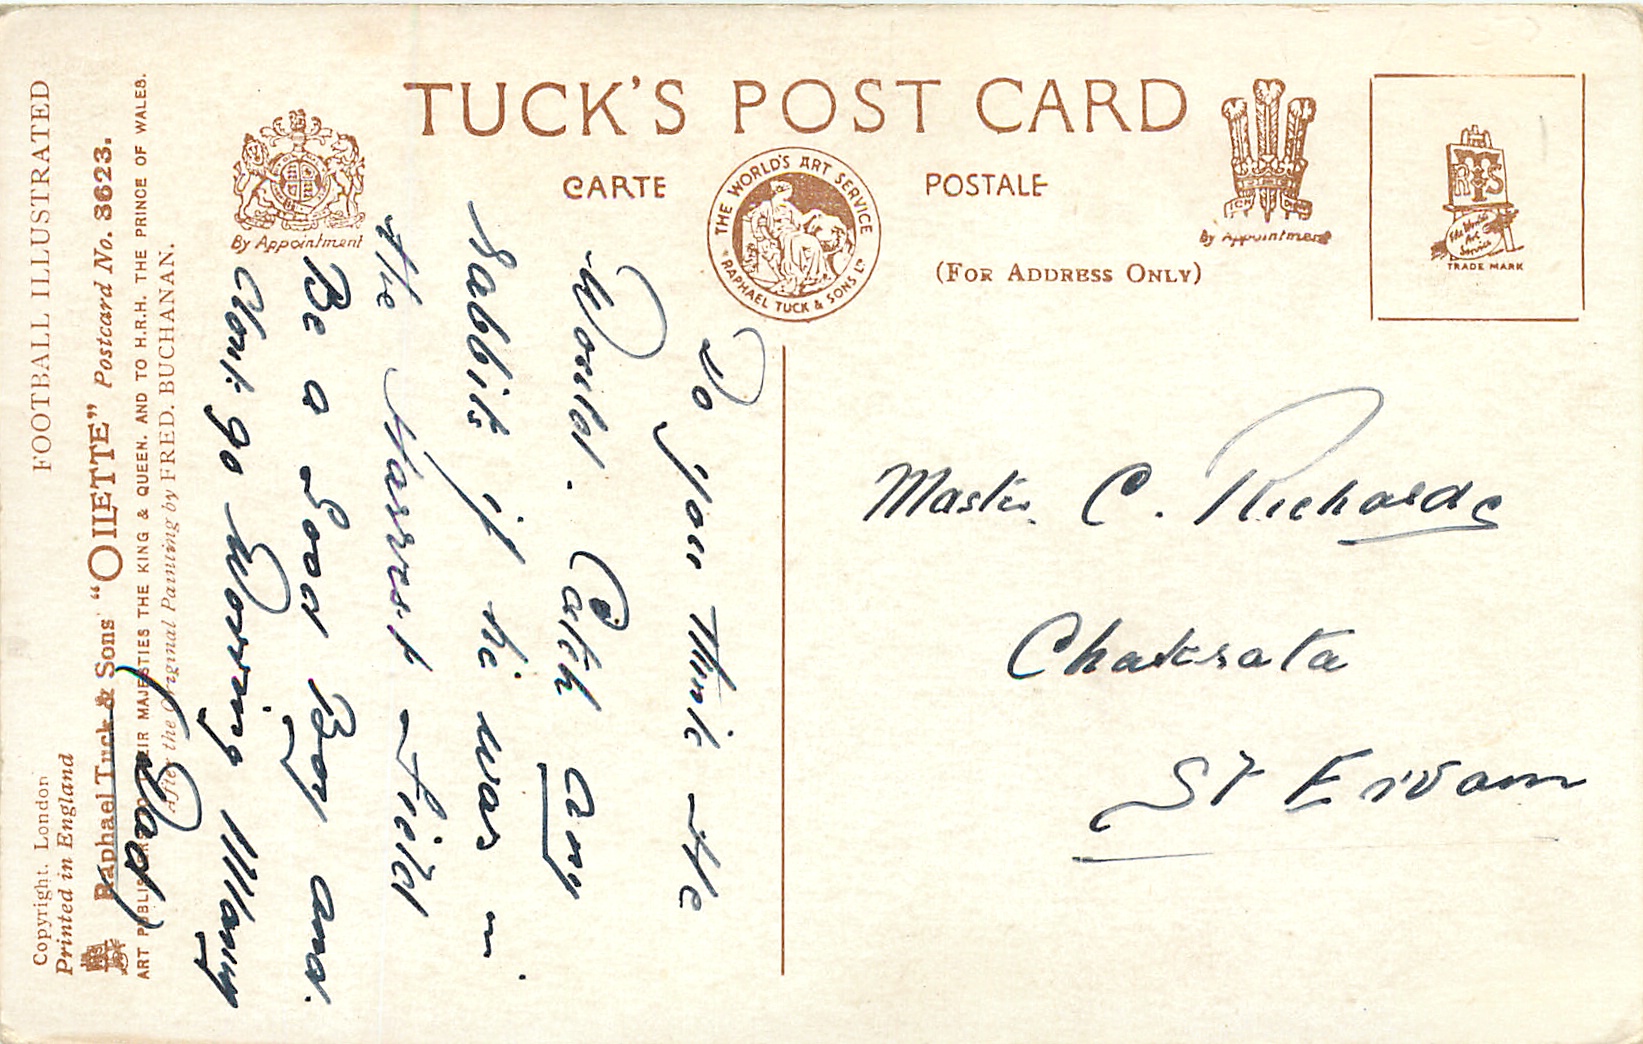 TUCK'S POST CARD
CARTE POSTALE
(FOR ADDRESS ONLY)
By Appointment
By Appointment
THE WORLD'S ART SERVICE
RAPHAEL TUCK & SONS LD
RTS
The World's
Art
Service
TRADE MARK
FOOTBALL ILLUSTRATED
Copyright. London
Printed in England
Raphael Tuck & Sons' "OILETTE" Postcard No. 3623.
ART PUBLISHERS TO THEIR MAJESTIES THE KING & QUEEN, AND TO H.R.H. THE PRINCE OF WALES.
After the Original Painting by FRED. BUCHANAN.
Do you think He
Would. Catch any
Rabbits if he was in
the Harvest Field
Be a Good Boy and.
dont go Worring Mamy
Dad
Master C. Richards
Chakrata
St Ervam